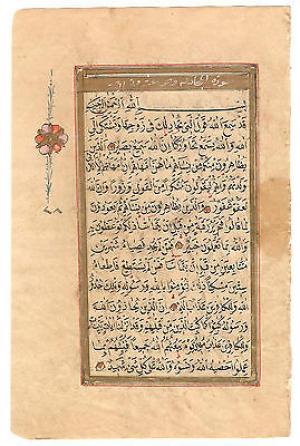 سورة المجادلة
بسم الله الرحمن الرحيم
قد سمع الله قول التي تجادلك في زوجها وتشتكي الى
الله والله يسمع تحاوركما ان الله سميع بصير الذين
يظاهرون منكم من نسائهم ما هن امهاتهم ان امهاتهم الا اللائي
ولدنهم وانهم ليقولون منكرا من القول وزورا وان الله
لعفو غفور والذين يظاهرون من نسائهم ثم يعودون
لما قالوا فتحرير رقبة من قبل ان يتماسا ذلكم توعظون به
والله بما تعملون خبير فمن لم يجد فصيام شهرين
متتابعين من قبل ان يتماسا فمن لم يستطع فاطعام
ستين مسكينا ذلك لتؤمنوا بالله ورسوله وتلك حدود
الله وللكافرين عذاب اليم ان الذين يحادون الله
ورسوله كبتوا كما كبت الذين من قبلهم وقد انزلنا ايات بينات
وللكافرين عذاب مهين يوم يبعثهم الله جميعا فينبئهم بما
عملوا احصيه الله ونسوه والله على كل شيء شهيد